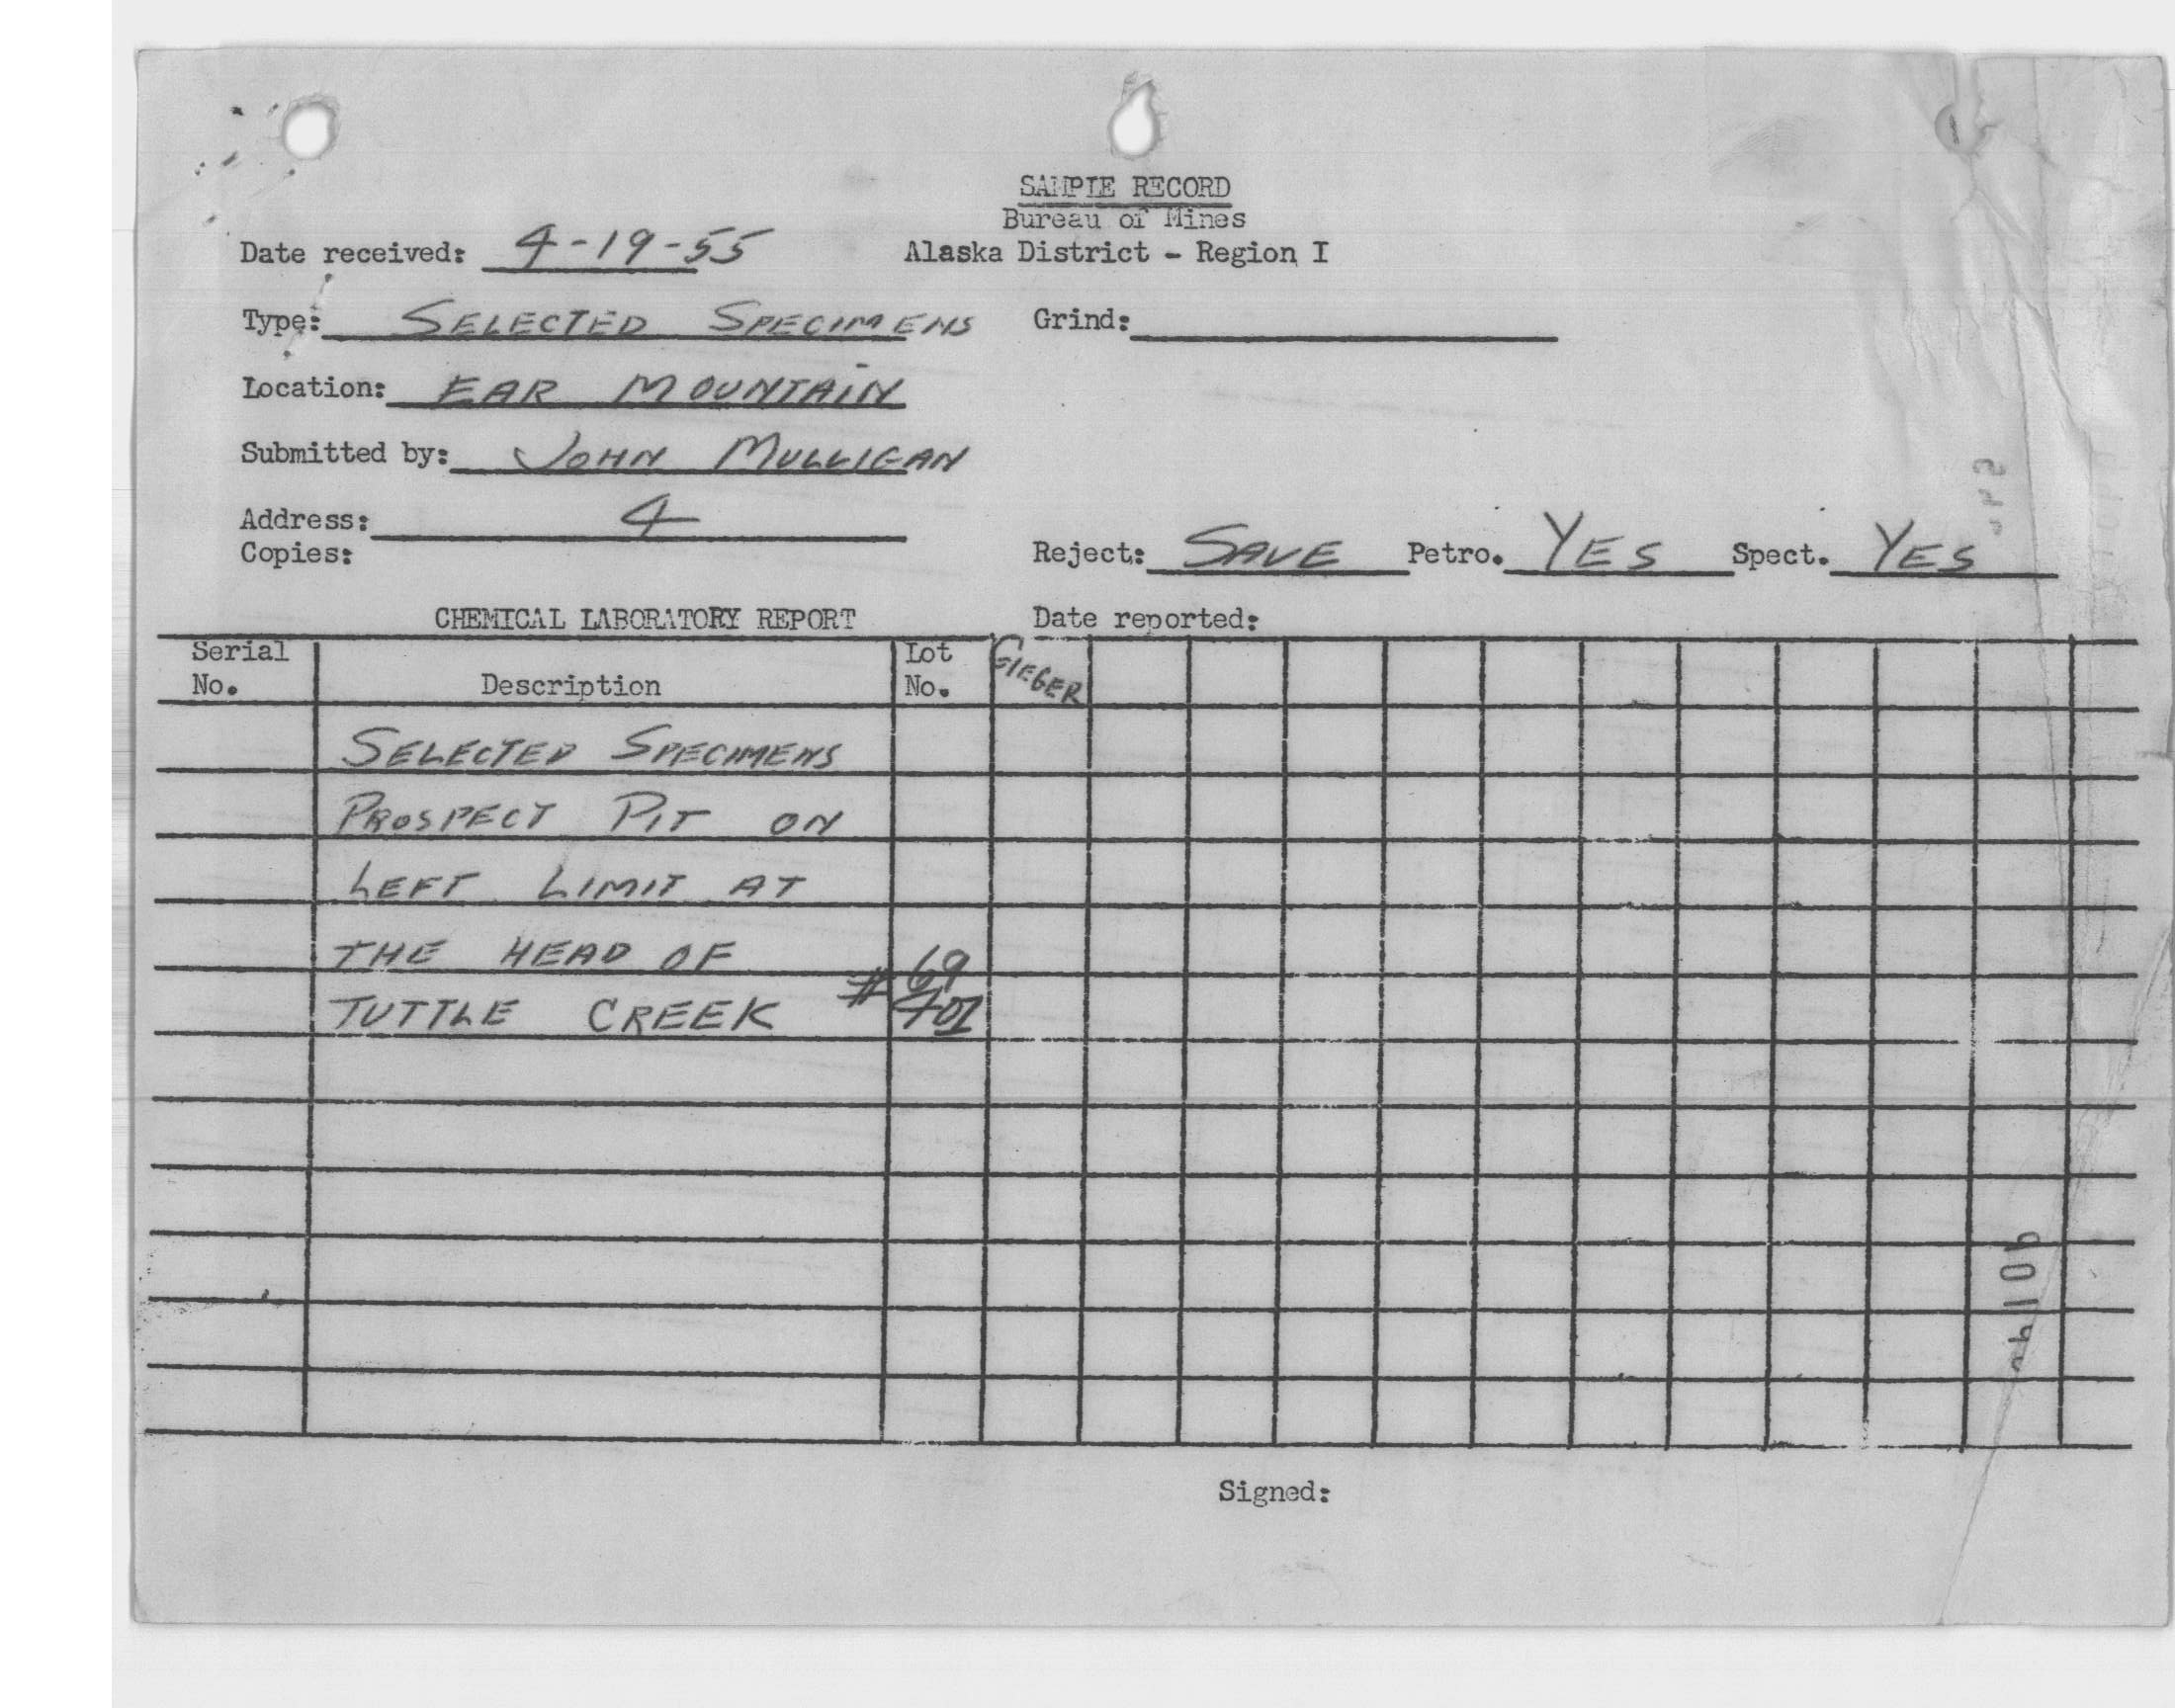 SAMPLE RECORD
Bureau of Mines
Date received: 4-19-55 Alaska District - Region I
Type: SELECTED SPECIMENS Grind:
Location: EAR MOUNTAIN
Submitted by: JOHN MULLIGAN
Address: 4
Copies:
Reject: SAVE Petro. YES Spect. YES
CHEMICAL LABORATORY REPORT Date reported:
Serial No. Description Lot No. GIEGER
SELECTED SPECIMENS
PROSPECT PIT ON
LEFT LIMIT AT
THE HEAD OF
TUTTLE CREEK # 69
Signed: